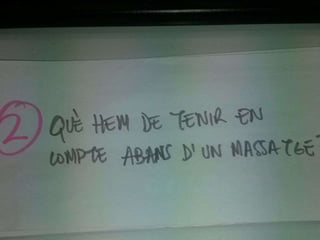 2 QUÈ HEM DE TENIR EN
COMPTE ABANS D'UN MASSATGE?